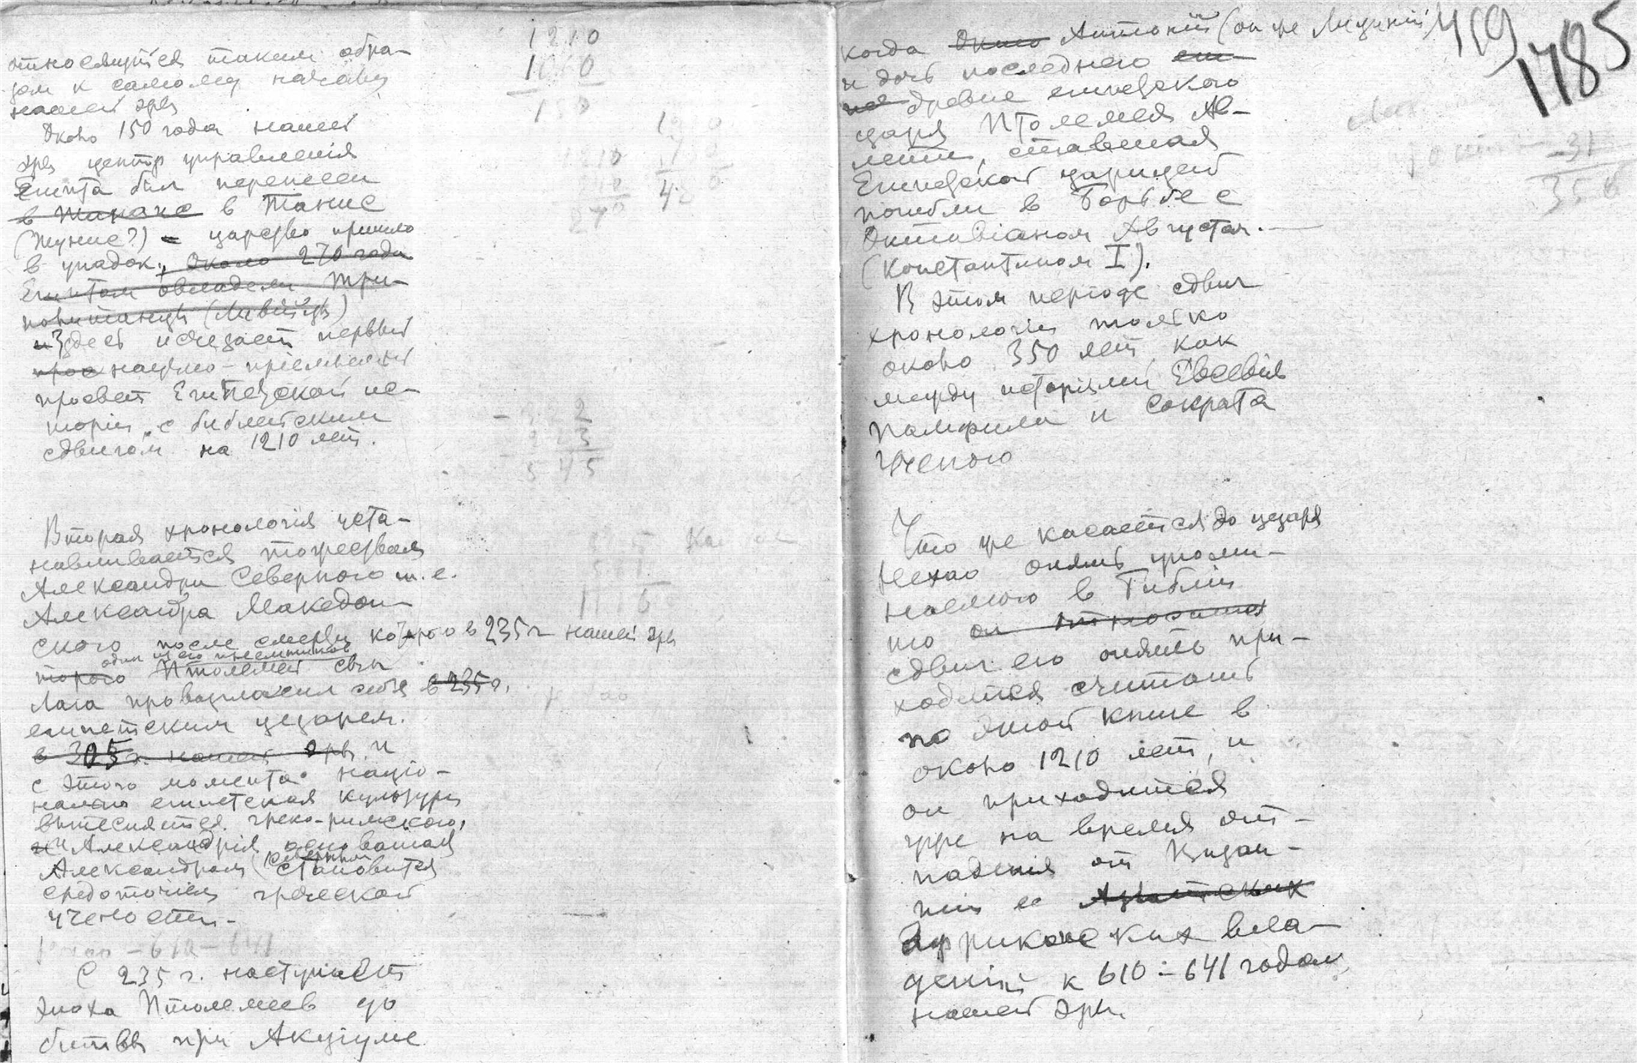 относящуюся таким обра-
зом к самому началу
нашей эры
Около 150 года нашей
эры центр управления
Египта был перенесен
в Танис
царство пришло
в упадок, около 270 года
Египтом овладели Три-
политанцы (Ливийцы)
Здесь исчезает первый
научно-приемлемый
просвет Египетской ис-
тории с библейским
сдвигом на 1210 лет.
Вторая хронология уста-
навливается посредством
Александра Северного т.е.
Александра Македон-
ского после смерти которого в 235 г нашей эры
один из его преемников
Птолемей сын
Лага провозгласил себя в 235 г.
египетским цезарем.
в 305 г. нашей эры и
с этого момента нацио-
нально египетская культура
вытесняется греко-римскою,
и Александрия основанная
Александром становится
средоточием греческой
учености.
610-641
С 235 г. наступает
эпоха Птолемеев до
битвы при Акциуме
1210
1060
150
419
1785
когда Антоний (он же Лициний)
и дочь последнего
древне египетского
царя Птолемея Ав-
лета, ставшая
Египетской царицей
погибли в борьбе с
Октавианом Августом.
(Константином I).
В этом периоде сдвиг
хронологии только
около 350 лет, как
между историями Евсевия
Памфила и Сократа
Ученого
Что же касается до цезаря
Нехао опять упоми-
наемого в Библии
то он относится
сдвиг его опять при-
ходится считать
по этой книге в
около 1210 лет, и
он приходится
уже на время от-
падения от Визан-
тии ее Азиатских
Африканских вла-
дений к 610-641 годам
нашей эры.